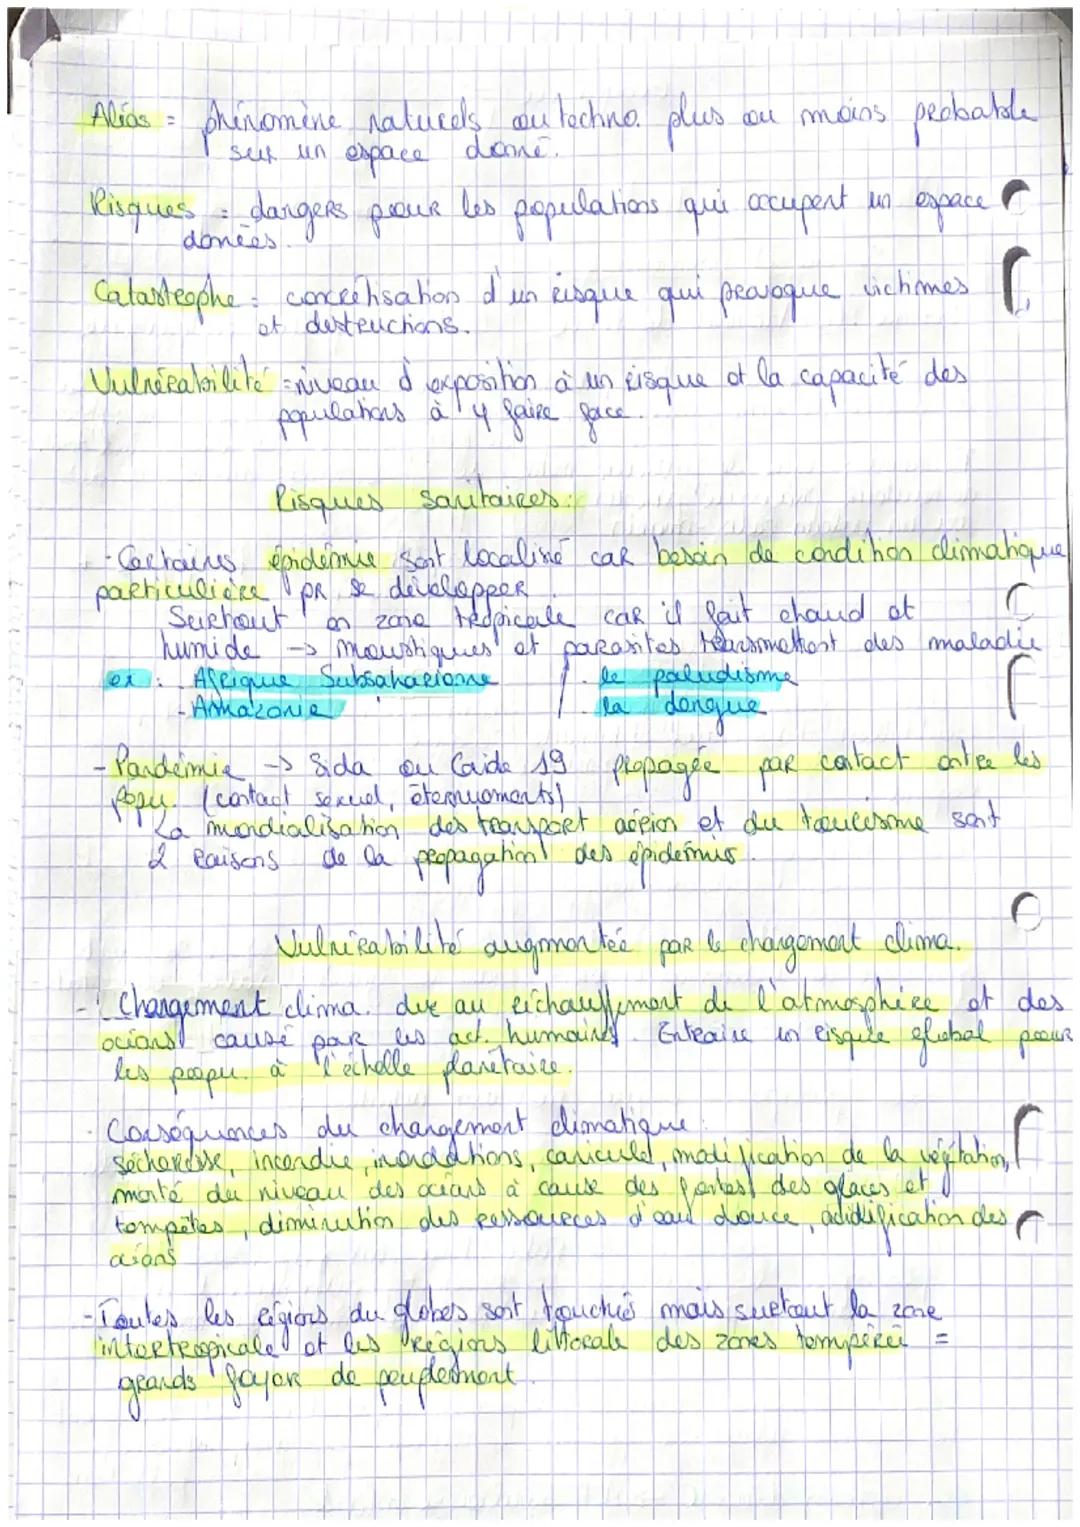 Aléas = phénomène naturels ou techno. plus ou moins probable
sur un espace donné.
Risques = dangers pour les populations qui occupent un espace
donées.
Catastrophe = concrétisation d'un risque qui provoque victimes
et destructions.
Vulnérabilité = niveau d'exposition à un risque et la capacité des
populations à y faire face.
Risques sanitaires :
- Certaines épidémie sont localisé car besoin de condition climatique
particulière pr se développer.
Surtout en zone tropicale car il fait chaud et
humide -> moustiques et parasites transmettent des maladie
ex : - Afrique Subsaharienne / - le paludisme
- Amazonie / - la dengue
- Pandémie -> Sida ou Covid 19 propagée par contact entre les
popu. (contact sexuel, éternuements)
La mondialisation des transport aérien et du tourisme sont
2 raisons de la propagation des épidémies.
Vulnérabilité augmentée par le changement clima.
- Changement clima. due au réchauffement de l'atmosphère et des
océans causé par les act. humaines. Entraine un risque global pour
les popu. à l'échelle planétaire.
- Conséquences du changement climatique :
sécheresse, incendie, inondations, canicule, modification de la végétation,
monté du niveau des océans à cause des fontes des glaces et
tempêtes, diminution des ressources d'eau douce, acidification des
océans
- Toutes les régions du globes sont touchés mais surtout la zone
intertropicale et les régions littorale des zones tempéré =
grands foyer de peuplement.